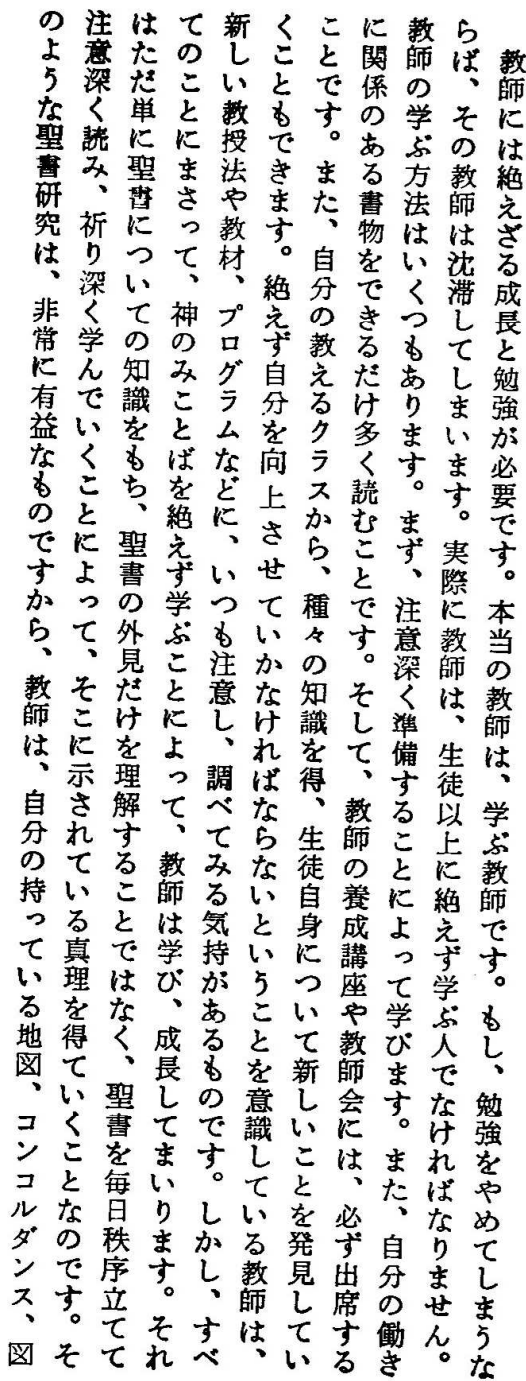 教師には絶えざる成長と勉強が必要です。本当の教師は、学ぶ教師です。もし、勉強をやめてしまうな
らば、その教師は沈滞してしまいます。実際に教師は、生徒以上に絶えず学ぶ人でなければなりません。
教師の学ぶ方法はいくつもあります。まず、注意深く準備することによって学びます。また、自分の働き
に関係のある書物をできるだけ多く読むことです。そして、教師の養成講座や教師会には、必ず出席する
ことです。また、自分の教えるクラスから、種々の知識を得、生徒自身について新しいことを発見してい
くこともできます。絶えず自分を向上させていかなければならないということを意識している教師は、
新しい教授法や教材、プログラムなどに、いつも注意し、調べてみる気持があるものです。しかし、すべ
てのことにまさって、神のみことばを絶えず学ぶことによって、教師は学び、成長してまいります。それ
はただ単に聖書についての知識をもち、聖書の外見だけを理解することではなく、聖書を毎日秩序立てて
注意深く読み、祈り深く学んでいくことによって、そこに示されている真理を得ていくことなのです。そ
のような聖書研究は、非常に有益なものですから、教師は、自分の持っている地図、コンコルダンス、図